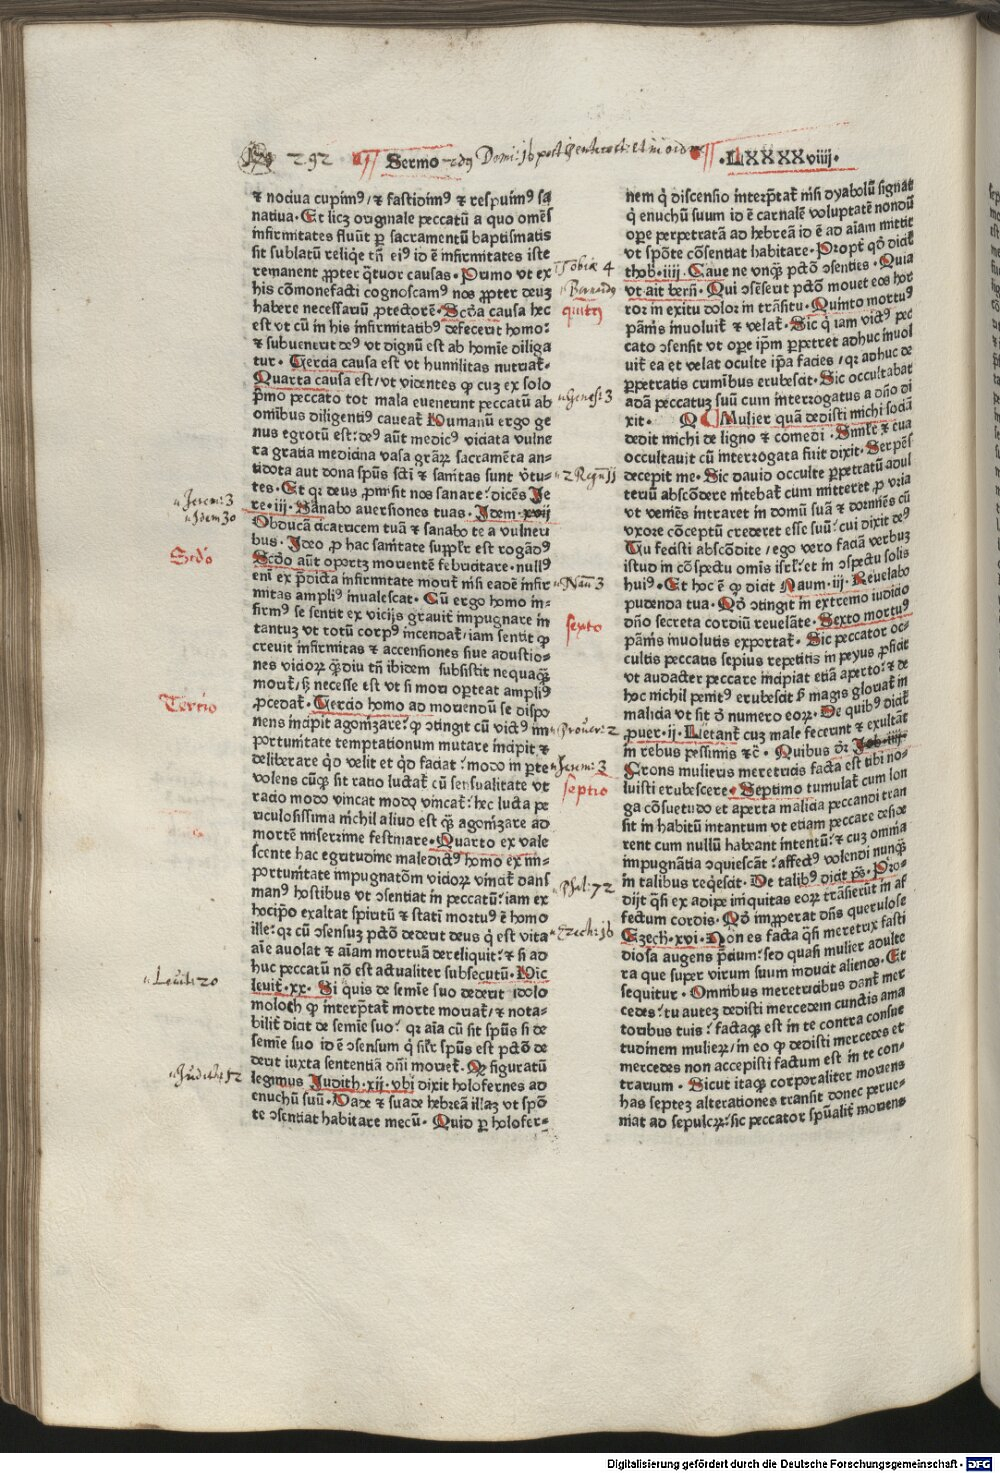 292 Sermo 2dꝰ Domi: 16 post Penthecost: et in oidne .LXXXXviiij.
⁊ nociua cupimꝰ/ ⁊ fastidimꝰ ⁊ respuimꝰ sa
natiua. Et licꝫ originale peccatū a quo omēs
infirmitates fluūt ꝑ sacramentū baptismatis
sit sublatū reliq̄e tn̄ eiꝰ id ē infirmitates iste
remanent ꝓpter q̄tuor causas. Primo vt ex
his cōmonefacti cognoscamꝰ nos ꝓpter deuꝫ
habere necessariū ꝓtectorē. Scd̓a causa hec
est vt cū in his infirmitatibꝰ defecerit homo:
⁊ subuenerit deꝰ vt dignū est ab homīe diliga
tur. Tercia causa est vt humilitas nutriat̄.
Quarta causa est/ vt videntes ꝙ cuꝫ ex solo
p̄mo peccato tot mala euenerint peccatū ab
omībus diligentiꝰ caueat̄ Humanū ergo ge
nus egrotū est: deꝰ aūt medicꝰ viciata vulne
ra gratia medicina vasa grāꝝ sacramēta an-
tidota aut dona spūs sct̄i ⁊ sanitas sunt v̓tu-
tes. Et qꝛ deus ꝓmisit nos sanare: dicēs Je
re. iij. Sanabo auersiones tuas. Idem. xvij
Obducā cicatricem tuā ⁊ sanabo te a vulneri
bus. Ideo ꝓ hac sanitate supplr̄ est rogādꝰ
Scd̓o aūt oportꝫ morientē febricitare. nullꝰ
eni ex p̄dicta infirmitate morit̄ nisi eadē infir
mitas ampliꝰ inualescat. Cū ergo homo in-
firmꝰ se sentit ex vicijs grauit̄ impugnare in
tantuꝫ vt totū corpꝰ incendat̄/ iam sentit ꝙ
creuit infirmitas ⁊ accensiones siue adustio-
nes vicioꝝ q̄diu tn̄ ibidem subsistit nequaq̄ꝫ
morit̄/ sꝫ necesse est vt si mori oꝑteat ampliꝰ
ꝓcedat. Tercio homo ad moriendū se dispo
nens incipit agonizare: ꝙ ↄtingit cū victꝰ im
portunitate temptationum mutare incipit ⁊
deliberare qd̓ velit et qd̓ faciat: modo in ꝑte
volens cūqꝫ sit ratio luctat̄ cū sensualitate vt
racio modo vincat modo vincat̄: hec lucta pe
riculosissima nichil aliud est q̄ꝫ agonizare ad
mortē miserrime festinare. Quarto ex vale
scente hac egritudine maledictꝰ homo ex im-
portunitate impugnatōm vicioꝝ vincit̄ dans
manꝰ hostibus vt ↄsentiat in peccatū: iam ex
hocip̄o exaltat spiritū ⁊ statī mortuꝰ ē homo
ille: qꝛ cū ↄsensuꝫ pctō dederit deus q̄ est vita
aīe auolat ⁊ aīam mortuā dereliquit: ⁊ si ad
huc peccatū nō est actualiter subsecutū. Hic
leuit̄. xx. Si quis de semīe suo dederit idolo
moloch ꝙ interp̄tat̄ morte moriat̄/ ⁊ nota-
bilit̄ dicit de semīe suo: qꝛ aīa cū sit spūs si de
semīe suo id ē ↄsensum q̄ silr̄ spūs est pctō de
derit iuxta sententiā dn̄i moriet̄. Qd̓ figuratū
legimus Judith. xij. vbi dixit holofernes ad
enuchū suū. Vade ⁊ suade hebreā illaꝫ vt spō
te ↄsentiat habitare mecū. Quid ꝑ holofer-
Jerem: 3
Idem 30
Scd̓o
Tertio
Levit: 20
Judith: 12
Tobiæ 4
Bernardꝰ
quitꝰ
Genes: 3
2 Regū 11
Naū 3
sexto
Prouer: 2
Jerem: 3
septiō
Psal: 72
Ezech: 16
nem q̄ discensio interp̄tat̄ nisi dyabolū signat
q̄ enuchū suum id ē carnalē voluptatē nondū
oꝑe perpetratā ad hebreā id ē ad aīam mittit
vt spōte cōsentiat habitare. Propt̄ qd̓ dicit̄
thob. iiij. Caue ne vnqꝫ pctō ↄsenties. Quia
vt ait bern̄. Qui ↄsēserit pctō mouet eos hor
ror in exitu dolor in trāsitu. Quinto mortuꝰ
pānis inuoluit̄ ⁊ velat̄. Sic q̄ iam victꝰ pec
cato ↄsensit vt oꝑe ip̄m ꝑpetret adhuc inuol
uit̄ ea et velat occulte ip̄a facies/ qꝛ adhuc de
ꝑpetratis criminibus erubescit. Sic occultabat
adā peccatuꝫ suū cum interrogatus a dn̄o di
xit. Q Mulier quā dedisti michi sociā
dedit michi de ligno ⁊ comedi. Similr̄ ⁊ eua
occultauit cū interrogata fuit dixit. Serpēs
decepit me. Sic dauid occulte ꝑpetratū adul
teriū abscōdere nitebat̄ cum mitteret ꝓ vria
vt veniēs intraret in domū suā ⁊ dormiēs cū
vxore cōceptū crederet esse suū: cui dixit deꝰ
Tu fecisti abscōdite/ ego vero faciā verbuꝫ
istud in cōspectu omis isrl̄: et in ↄspectu solis
huiꝰ. Et hoc ē ꝙ dicit Naum. iij. Reuelabo
pudenda tua. Qd̓ ↄtingit in extremo iudicio
dn̄o secreta cordiū reuelāte. Sexto mortuꝰ
pānis inuolutis exportat̄. Sic peccator oc-
cultis peccatis sepius repetitis in peyus ꝓficit
vt audacter peccare incipiat etiā aperto: ⁊ de
hoc nichil penitꝰ erubescit sꝫ magis gloriat̄ in
malicia vt sit d̓ numero eoꝝ. De quibꝰ dicit̄
ꝓuer. ij. Letant̄ cuꝫ male fecerint ⁊ exultāt
in rebus pessimis ⁊c̄. Quibus dr̄ Job. iiij.
Frons mulieris meretricis facta est tibi no-
luisti erubescere. Septimo tumulat̄ cum lon
ga cōsuetudo et aperta malicia peccandi tran
sit in habitū intantum vt etiam peccare deside
rent cum nullū habeant intentū: ⁊ cuꝫ omnia
impugnātia ↄquiescāt: affectꝰ volendi nunqꝫ
in talibus reqͥescit. De talibꝰ dicit ps. Pro-
dijt qͣsi ex adipe iniquitas eoꝝ trāsierūt in af
fectum cordis. Qd̓ imꝓperat dn̄s querulose
Ezech̄. xvi. Non es facta qͣsi meretrix fasti
diosa augens p̄cium: sed quasi mulier adulte
ra que super virum suum inducit alienos. Et
sequitur. Omnibus meretricibus dant̄ mer
cedes: tu autez dedisti mercedem cunctis ama
toribus tuis: factaqꝫ est in te contra consue
tudinem mulieꝝ/ in eo ꝙ dedisti mercedes et
mercedes non accepisti factum est in te con-
trarium. Sicut itaqꝫ corporaliter moriens
has septeꝫ alterationes transit donec perue-
niat ad sepulcꝝ: sic peccator spūalit̄ moriens
Digitalisierung gefördert durch die Deutsche Forschungsgemeinschaft - DFG